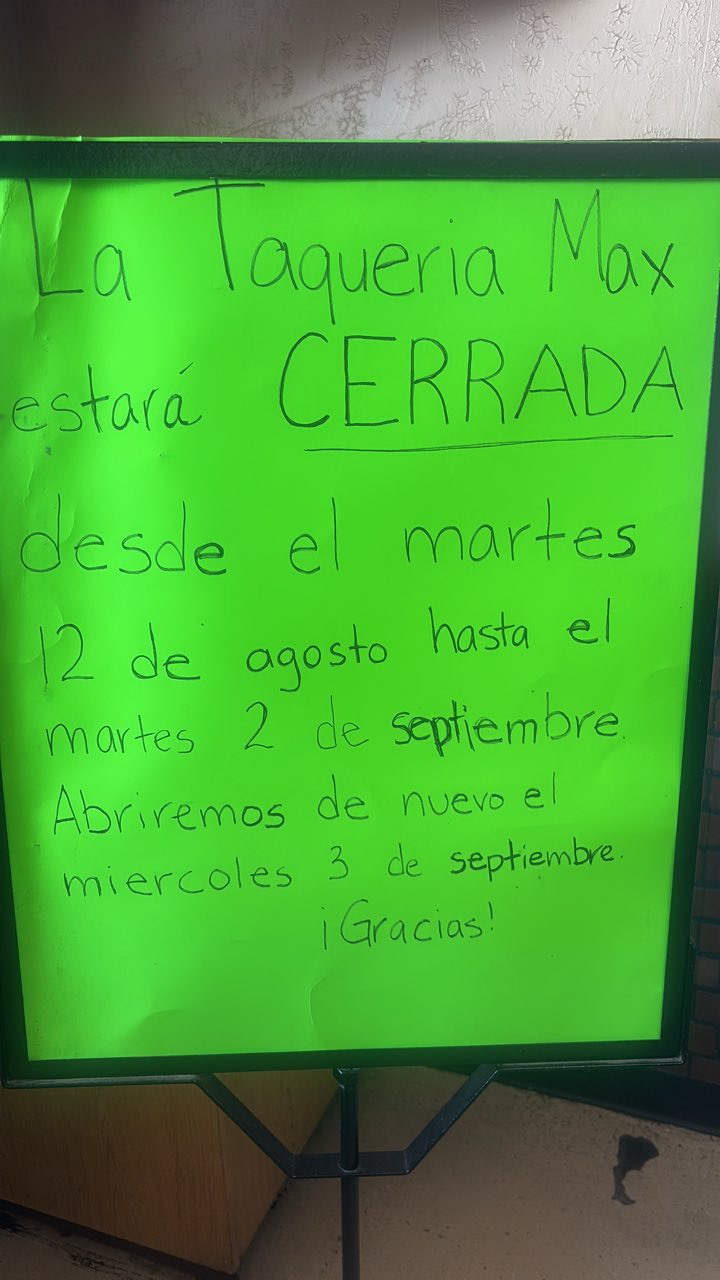 La Taqueria Max
estará CERRADA
desde el martes
12 de agosto hasta el
martes 2 de septiembre.
Abriremos de nuevo el
miercoles 3 de septiembre.
¡Gracias!